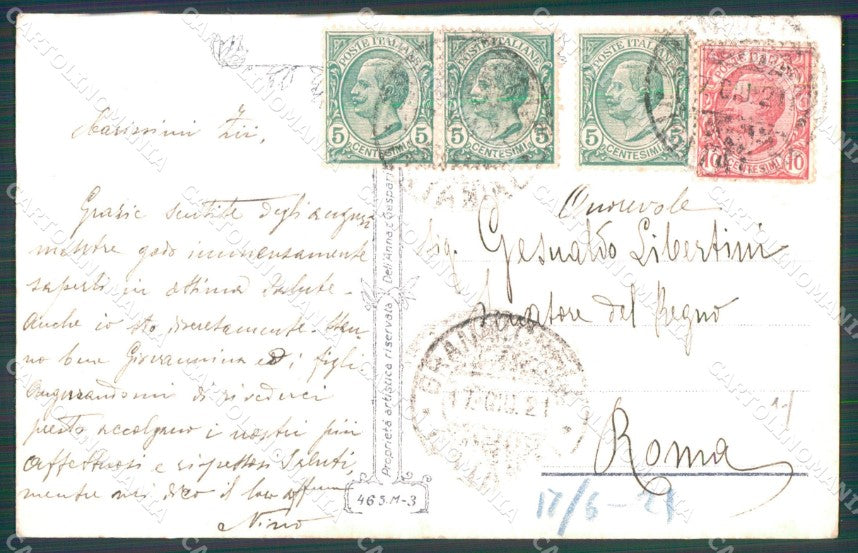 POSTE ITALIANE
5 CENTESIMI 5
POSTE ITALIANE
5 CENTESIMI 5
POSTE ITALIANE
5 CENTESIMI 5
10 CENTESIMI 10
Carissimi Zii,
Grazie sentite degli auguri
mentre godo immensamente
saperti in ottima salute.
Anche io sto discretamente. Stan-
no bene Giovannina ed i figli
Augurandomi di rivederci
presto accolgano i nostri più
affettuosi e rispettosi saluti,
mentre mi dico il loro aff
Nino
Proprietà artistica riservata Dell'Anna e Gasparini
463.M-3
Onorevole
Sig. Gesualdo Libertini
Senatore del Regno
Roma
17 GIU. 21
11
17/6-21
CARTOLINOMANIA